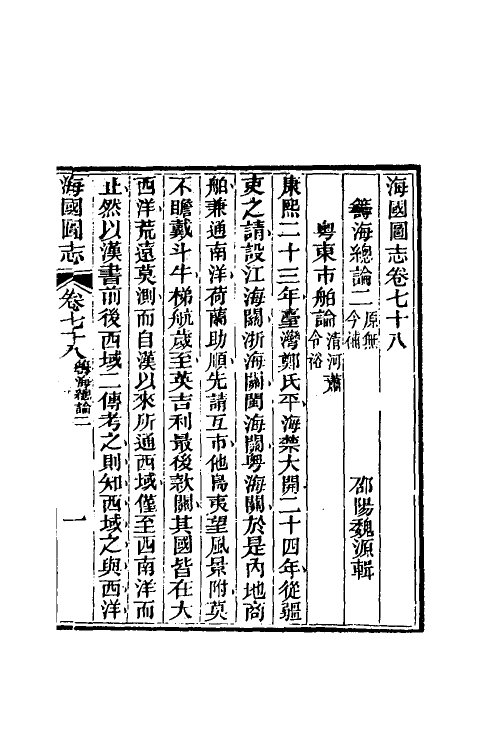 海國圖志卷七十八
籌海總論二 原無今補 邵陽魏源輯
粤東市舶論 清河蕭令裕
康熙二十三年臺灣鄭氏平海禁大開二十四年從疆
吏之請設江海關浙海關閩海關粤海關於是內地商
舶兼通南洋荷蘭助順先請互市他島夷望風景附莫
不瞻戴斗牛梯航歲至英吉利最後款關其國皆在大
西洋荒遠莫測而自漢以來所通西域僅至西南洋而
止然以漢書前後西域二傳考之則知西域之與西洋
海國圖志 卷七十八 籌海總論二 一